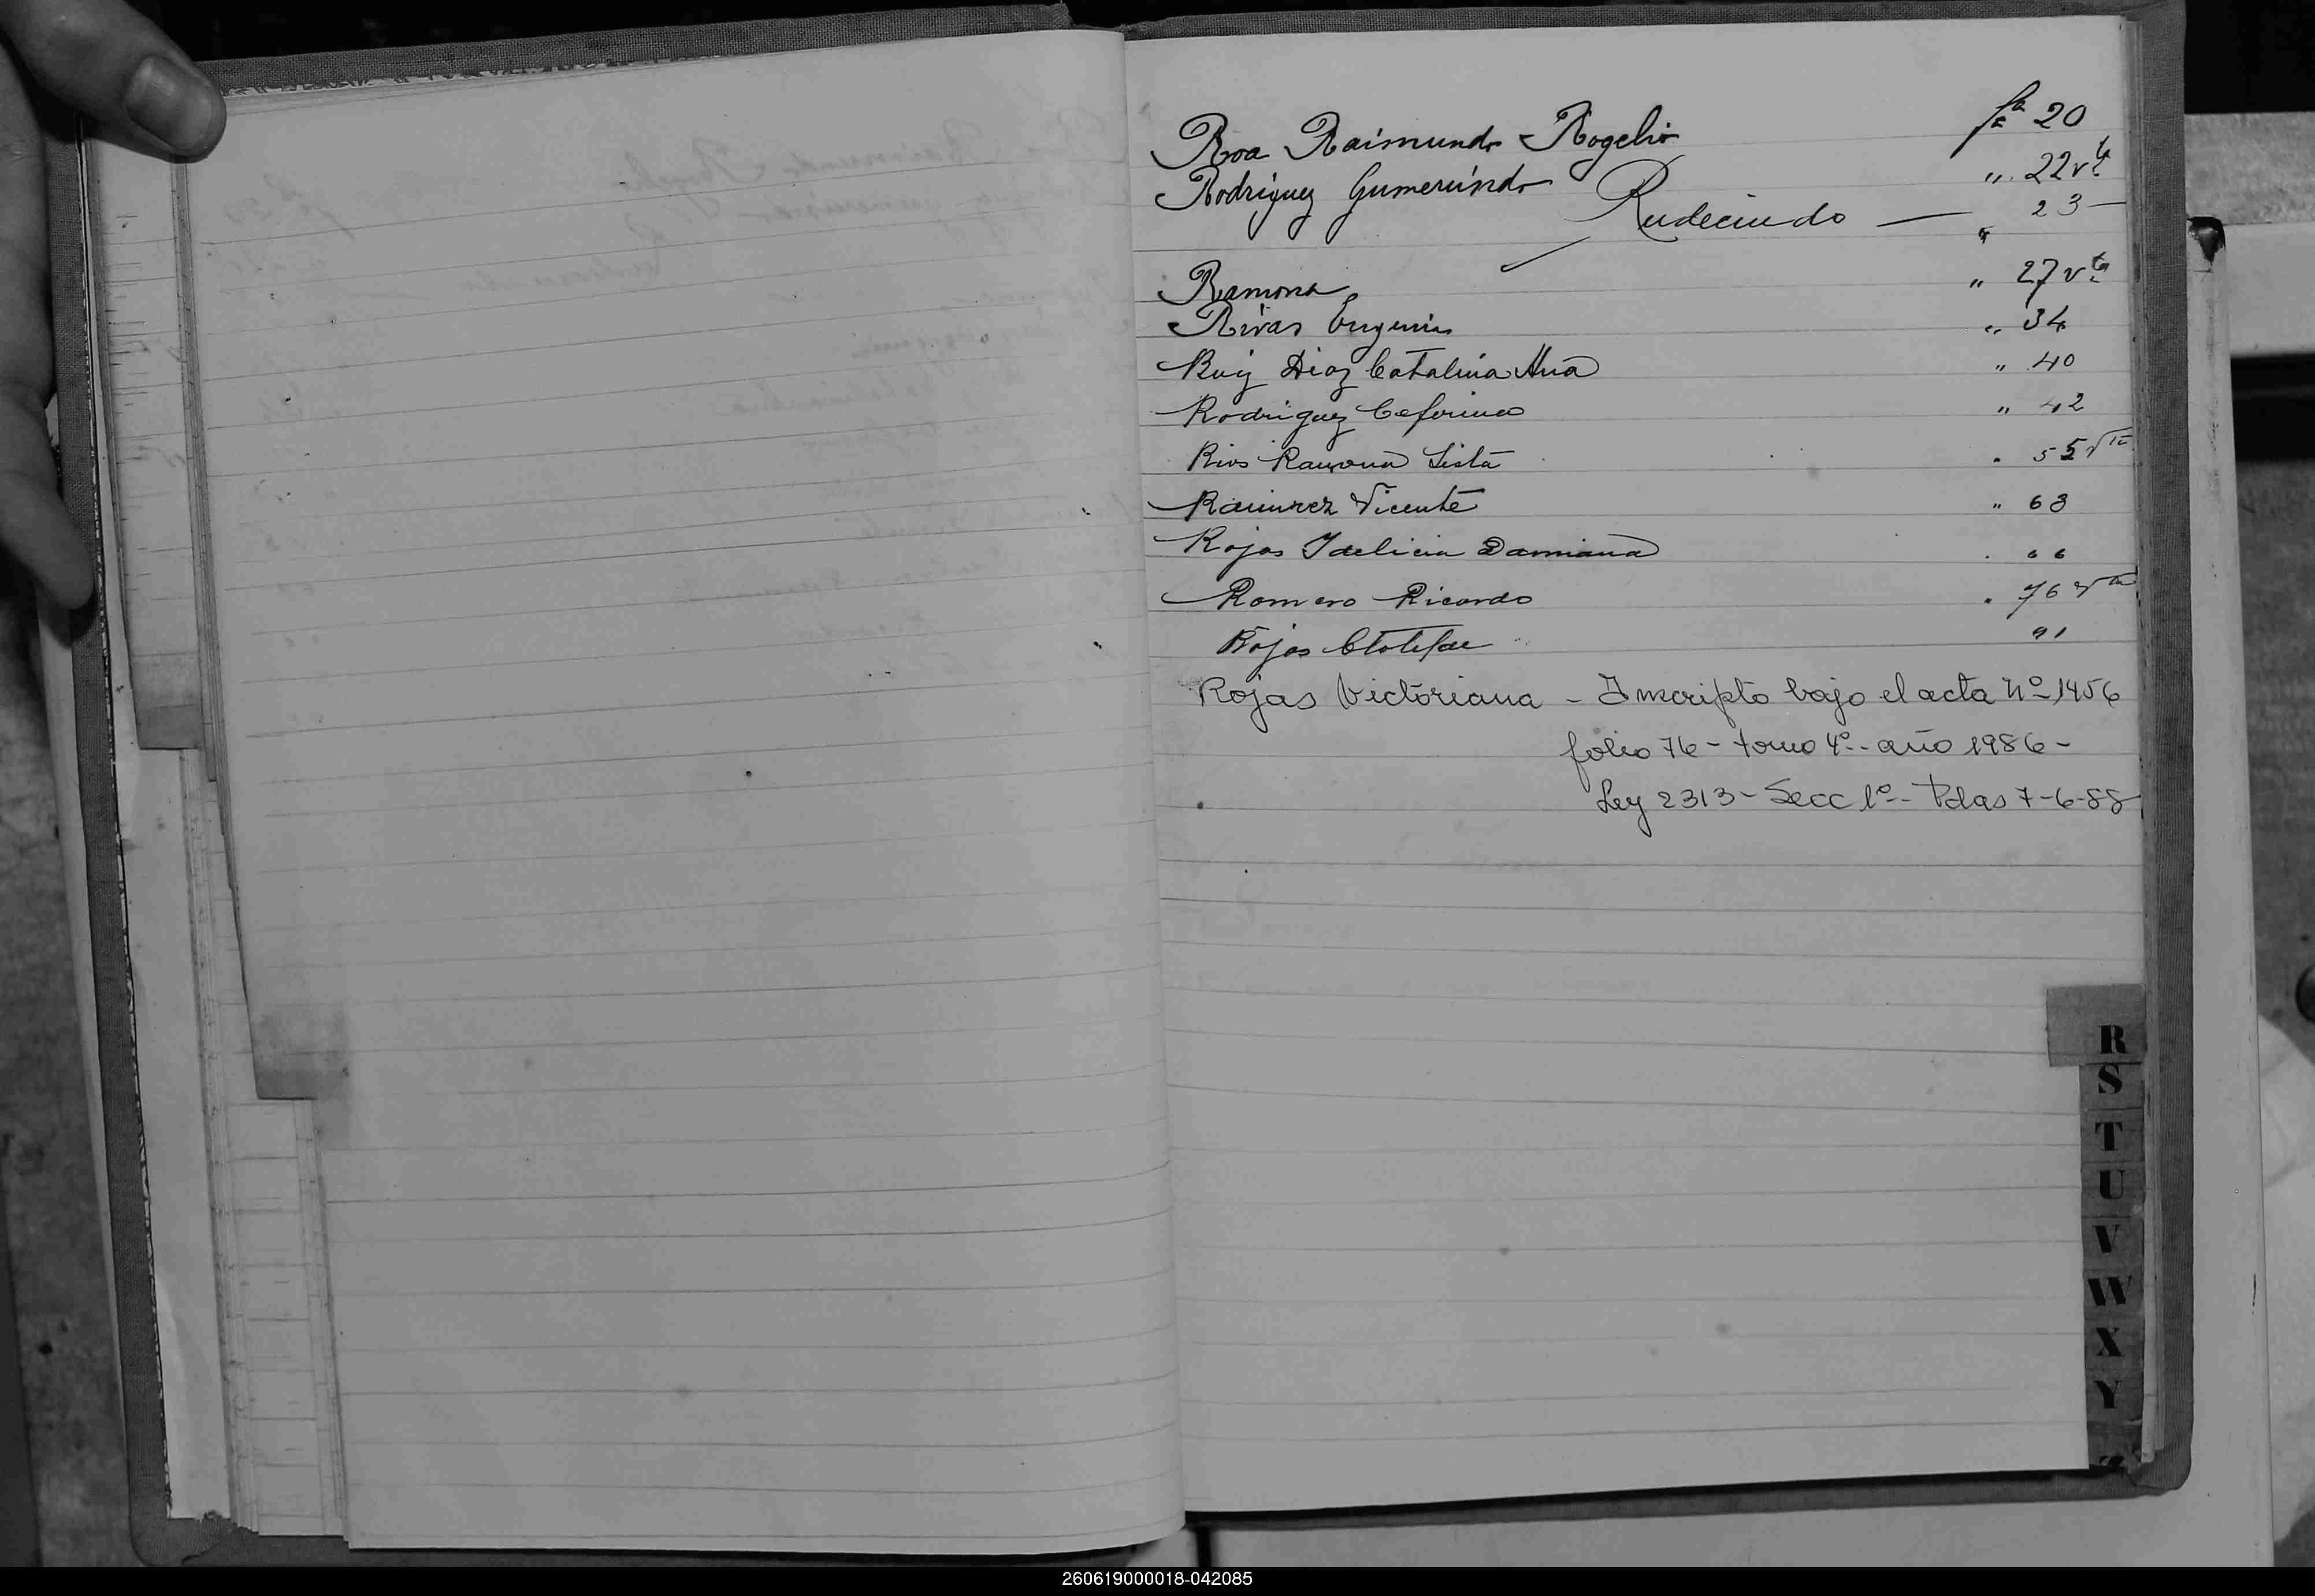 Roa Raimundo Rogelio fa 20
Rodriguez Gumersindo " 22 vta
Rudecindo — " 23 —
Ramona " 27 vta
Rivas Eugenia " 34
Ruiz Diaz Catalina Ana " 40
Rodriguez Ceferina " 42
Rios Ramona Sista " 55 vta
Ramirez Vicente " 63
Rojas Idelicia Damiana " 66
Romero Ricardo " 76 vta
Rojas 91
Rojas Victoriana - Inscripto bajo el acta Nº 1456
folio 76 - tomo 4º - año 1986 -
Ley 2313 - Secc 1º - Pdas 7-6-88
R
S
T
U
V
W
X
Y
Z
260619000018-042085